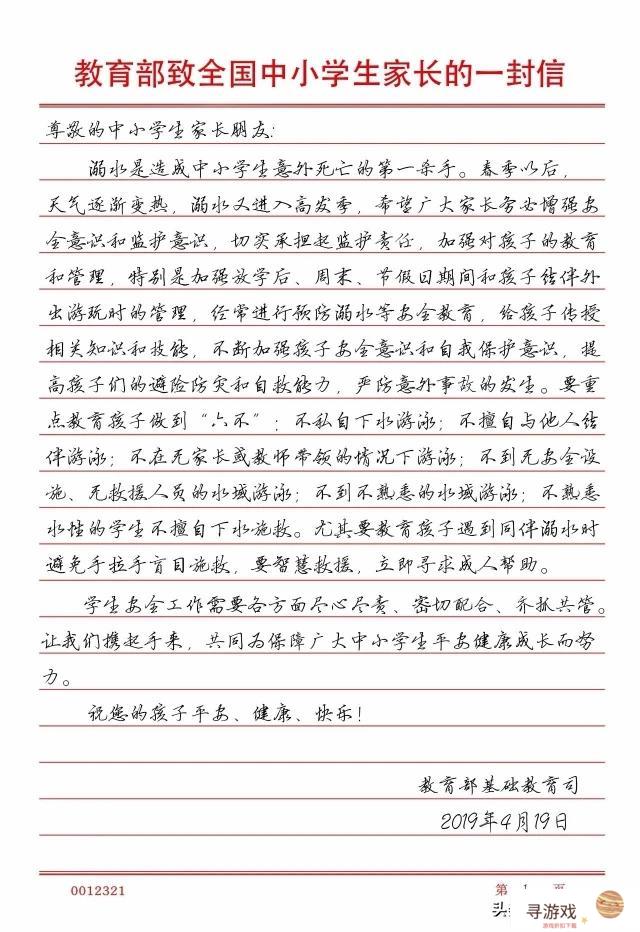 教育部致全国中小学生家长的一封信
尊敬的中小学生家长朋友:
溺水是造成中小学生意外死亡的第一杀手。春季以后,
天气逐渐变热,溺水又进入高发季,希望广大家长务必增强安
全意识和监护意识,切实承担起监护责任,加强对孩子的教育
和管理,特别是加强放学后、周末、节假日期间和孩子结伴外
出游玩时的管理,经常进行预防溺水等安全教育,给孩子传授
相关知识和技能,不断加强孩子安全意识和自我保护意识,提
高孩子们的避险防灾和自救能力,严防意外事故的发生。要重
点教育孩子做到“六不”:不私自下水游泳;不擅自与他人结
伴游泳;不在无家长或教师带领的情况下游泳;不到无安全设
施、无救援人员的水域游泳;不到不熟悉的水域游泳;不熟悉
水性的学生不擅自下水施救。尤其要教育孩子遇到同伴溺水时
避免手拉手盲目施救,要智慧救援,立即寻求成人帮助。
学生安全工作需要各方面尽心尽责、密切配合、齐抓共管。
让我们携起手来,共同为保障广大中小学生平安健康成长而努
力。
祝您的孩子平安、健康、快乐!
教育部基础教育司
2019年4月19日
0012321
第
头
寻游戏
游戏折扣下载